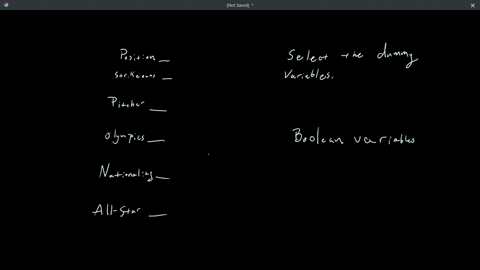 [Not Saved] *
Position __
Strikeouts __
Pitcher __
Olympics __
Nationality __
All-Star __
Select the dummy
variables.
Boolean variables